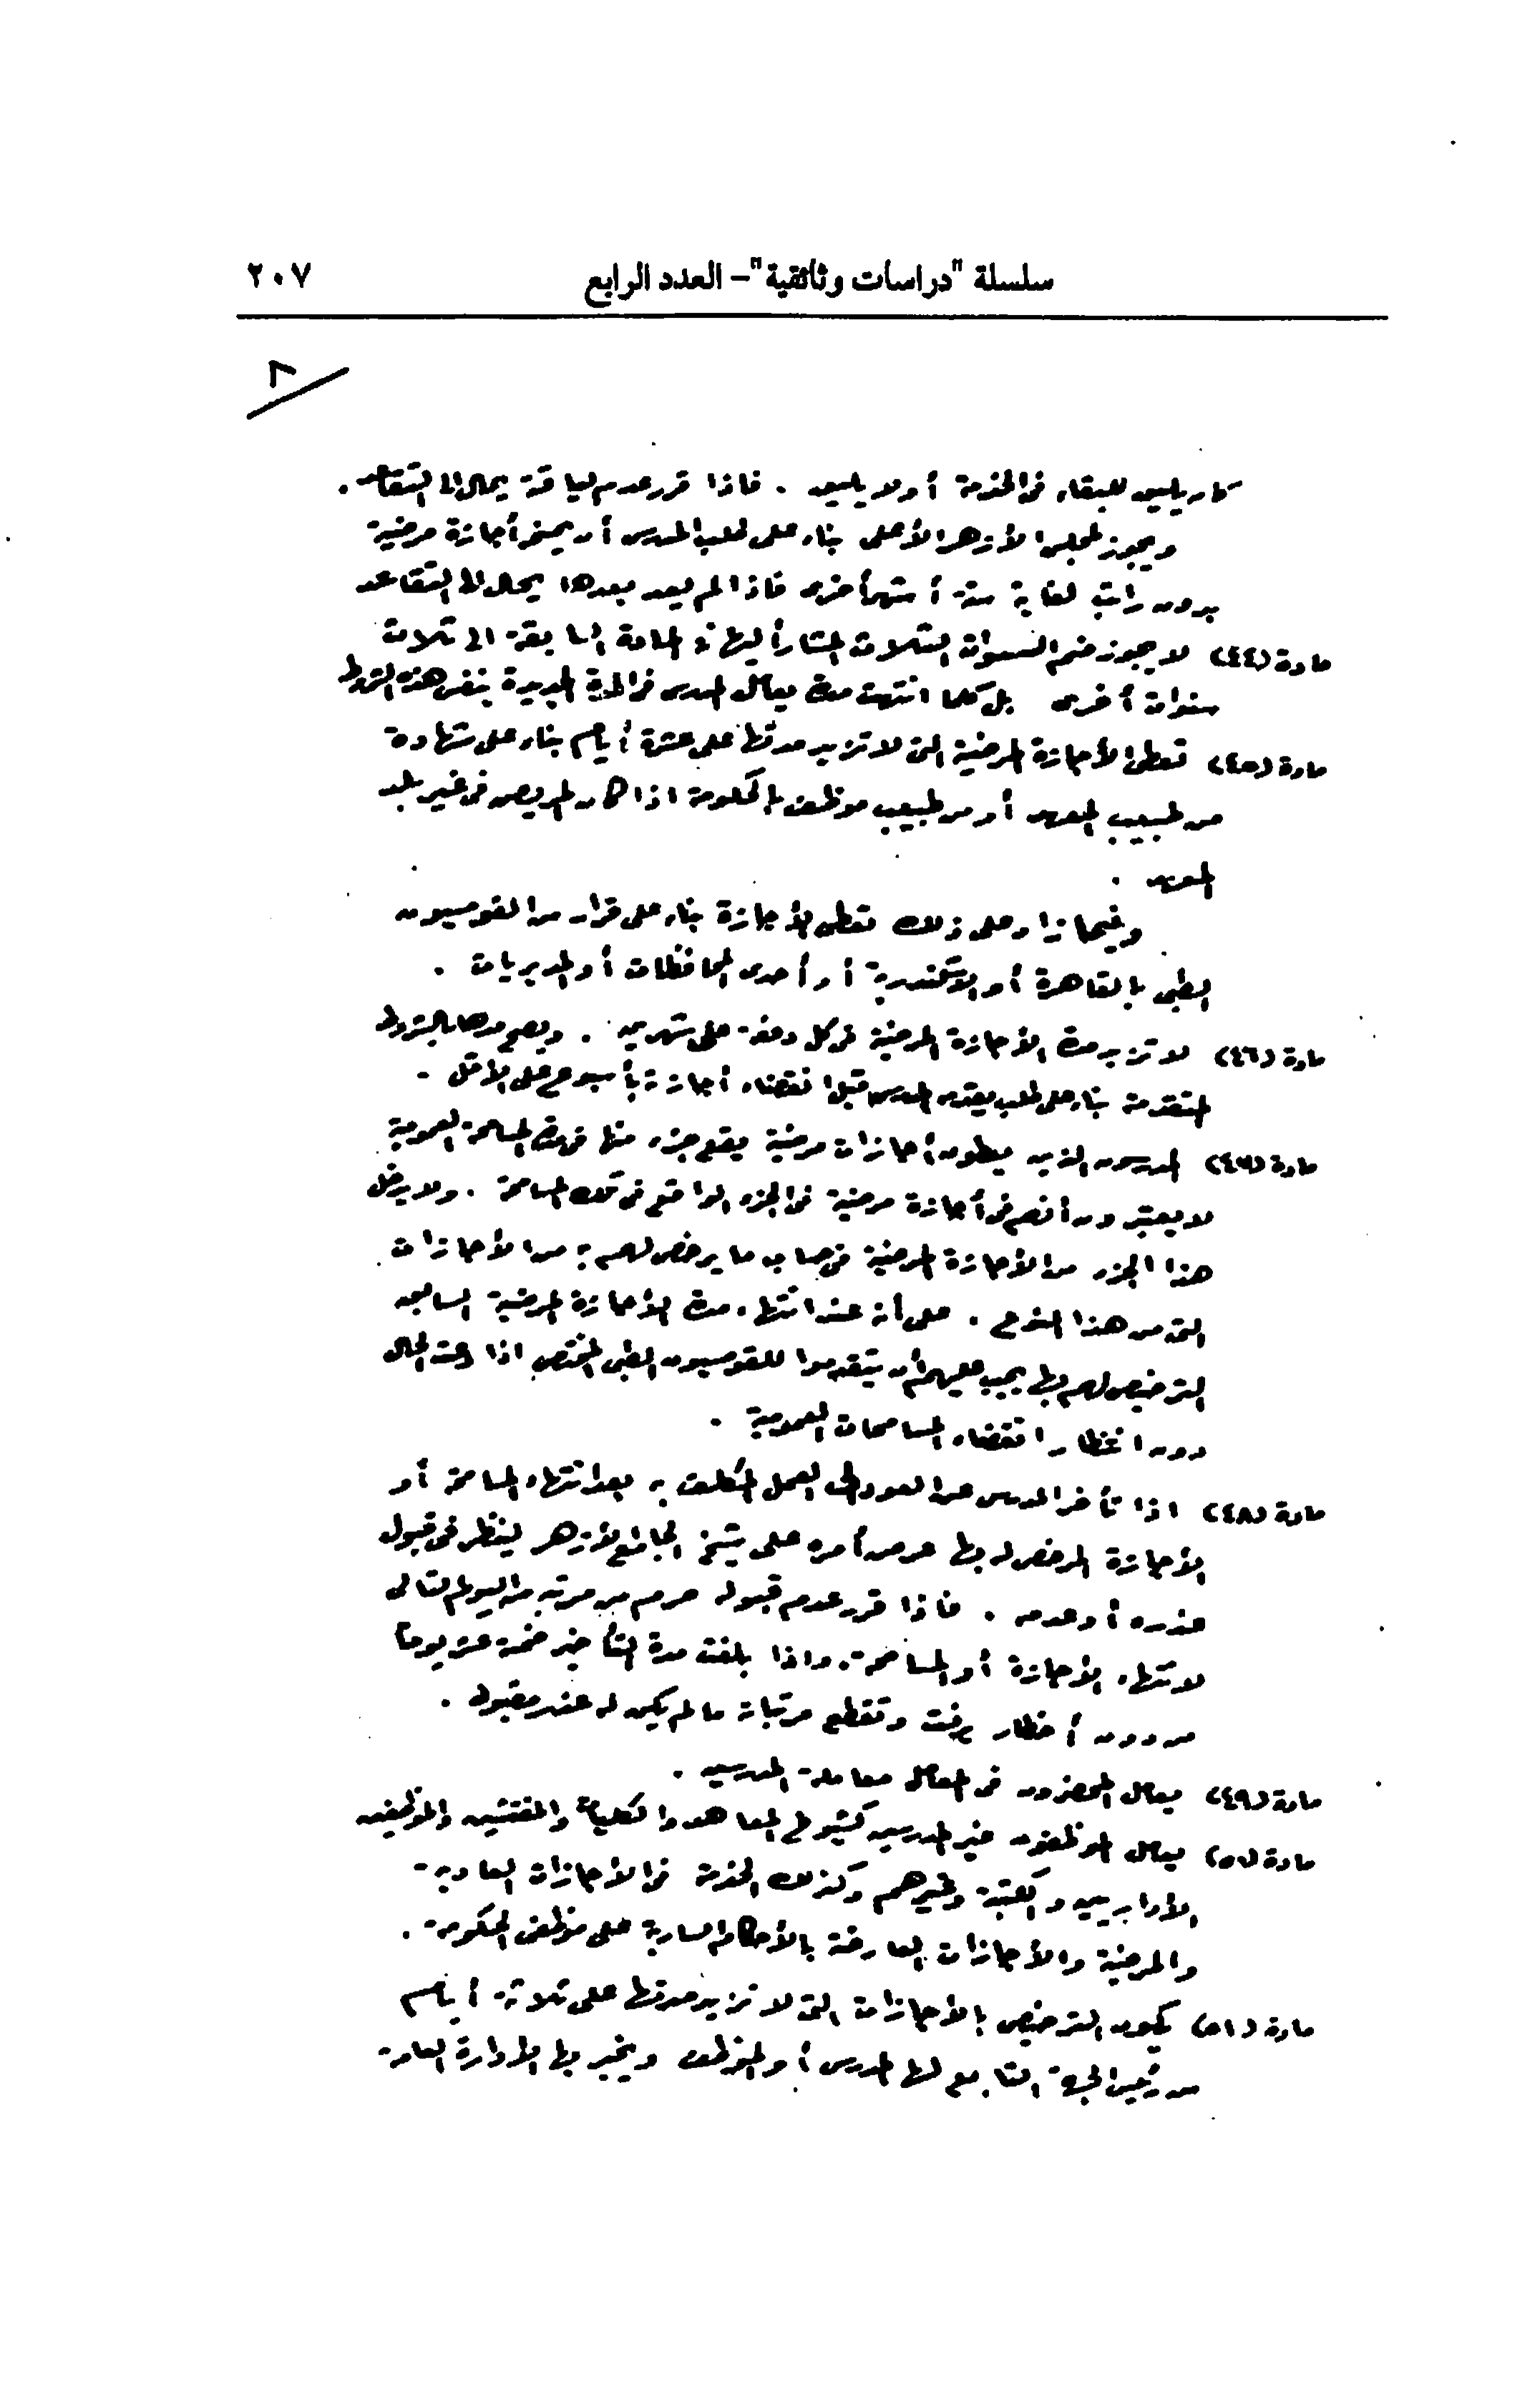 سلسلة "دراسات وثائقية"– العدد الرابع ٢٠٧
٨
كان يليق للبقاء فى الخدمة أو لا يليق . فاذا قرر عدم لياقته يحال الى التقاعد .
ويجوز لمجلس الأزهر الأعلى بناء على طلب المدرس أن يمنحه أجازة مرضية
بدون راتب لغاية ستة أشهر أخرى فاذا لم يعد بعدها يحال الى التقاعد
مادة (٤٤) لا يجوز ضم السنوات الثلاث المشار أليها فى المادة السابقة الى ثلاث
سنوات أخرى بل كلما انتهت مدة يعامل المدرس فى المدة الجديدة بنفس هذه الشروط
مادة (٤٥) تعطى الأجازة المرضية التى لا تزيد مدتها على عشرة أيام بناء على شهادة
من طبيب المعهد أو من طبيب موظف بالحكومة اذا كان المريض فى غير بلد
المعهد .
وفيما زاد على ذلك تعطى الأجازة بناء على قرار من القومسيون
الطبى بالقاهرة أو الاسكندرية أو أحدى المحافظات أو المديريات .
مادة (٤٦) لا تزيد مدة الأجازة المرضية فى كل دفعة على شهرين . ويصح مدها بالشروط
المتقدمة بناء على طلب يقدمه المدرس قبل انقضاء أجازته بأسبوع على الأقل .
مادة (٤٧) المدرسون الذين يعطون أجازات مرضية يقع جزء منها فى مدة المسامحة العمومية
لا يعتبرون أنهم فى أجازة مرضية فى الجزء الواقع فى تلك المسامحة . ولا يدخل
هذا الجزء من الأجازة المرضية فى حساب ما يرخص لهم به من الأجازات
التى من هذا النوع . على أنه عند انتهاء مدة الأجازة المرضية السابق
الترخيص لهم بها يجب عليهم أن يتقدموا للقومسيون الطبى المختص اذا دعت الحال
دون انتظار انقضاء المسامحات العمومية .
مادة (٤٨) اذا تأخر المدرس عن العود الى العمل المكلف به بعد انتهاء المسامحة أو
الأجازة المرخص له بها عرض أمره على شيخ الجامع الأزهر لينظر فى قبول
عذره أو عدمه . فاذا قرر عدم قبوله حرم من مرتبه من اليوم التالى
لانتهاء الأجازة أو المسامحة. واذا بلغت مدة التأخير خمسة عشر يوماً
من دون أخطار يرفت وتقطع مرتباته ما لم يكن له عذر مقبول .
مادة (٤٩) يعامل المحضرون فى المعامل معاملة المدرسين .
مادة (٥٠) يعامل الموظفون غير المدرسين كشيوخ المعاهد والكليات والمفتشين والموظفين
الأداريين والكتبة وغيرهم وكذلك الخدمة فى الأجازات العادية
والمرضية والأجازات العارضة بالأحكام السارية على موظفى الحكومة .
مادة (٥١) يكون الترخيص بالأجازات التى لا تزيد مدتها على ثلاثة أيام
من رئيس الجهة التابع لها المدرس أو الموظف ويخبر بها الادارة العامة